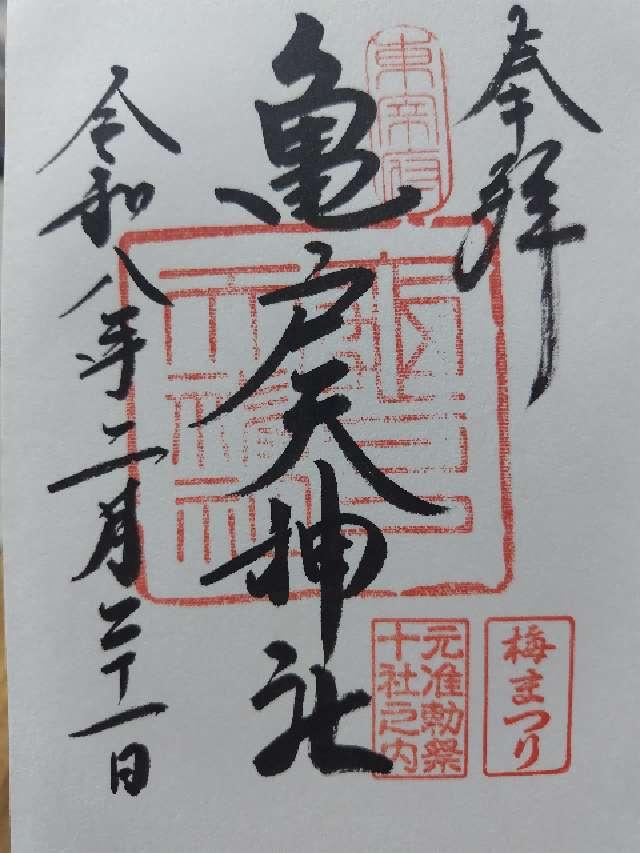 奉拝
東宰府
亀戸天神社
令和八年二月二十一日
元准勅祭
十社之内
梅まつり